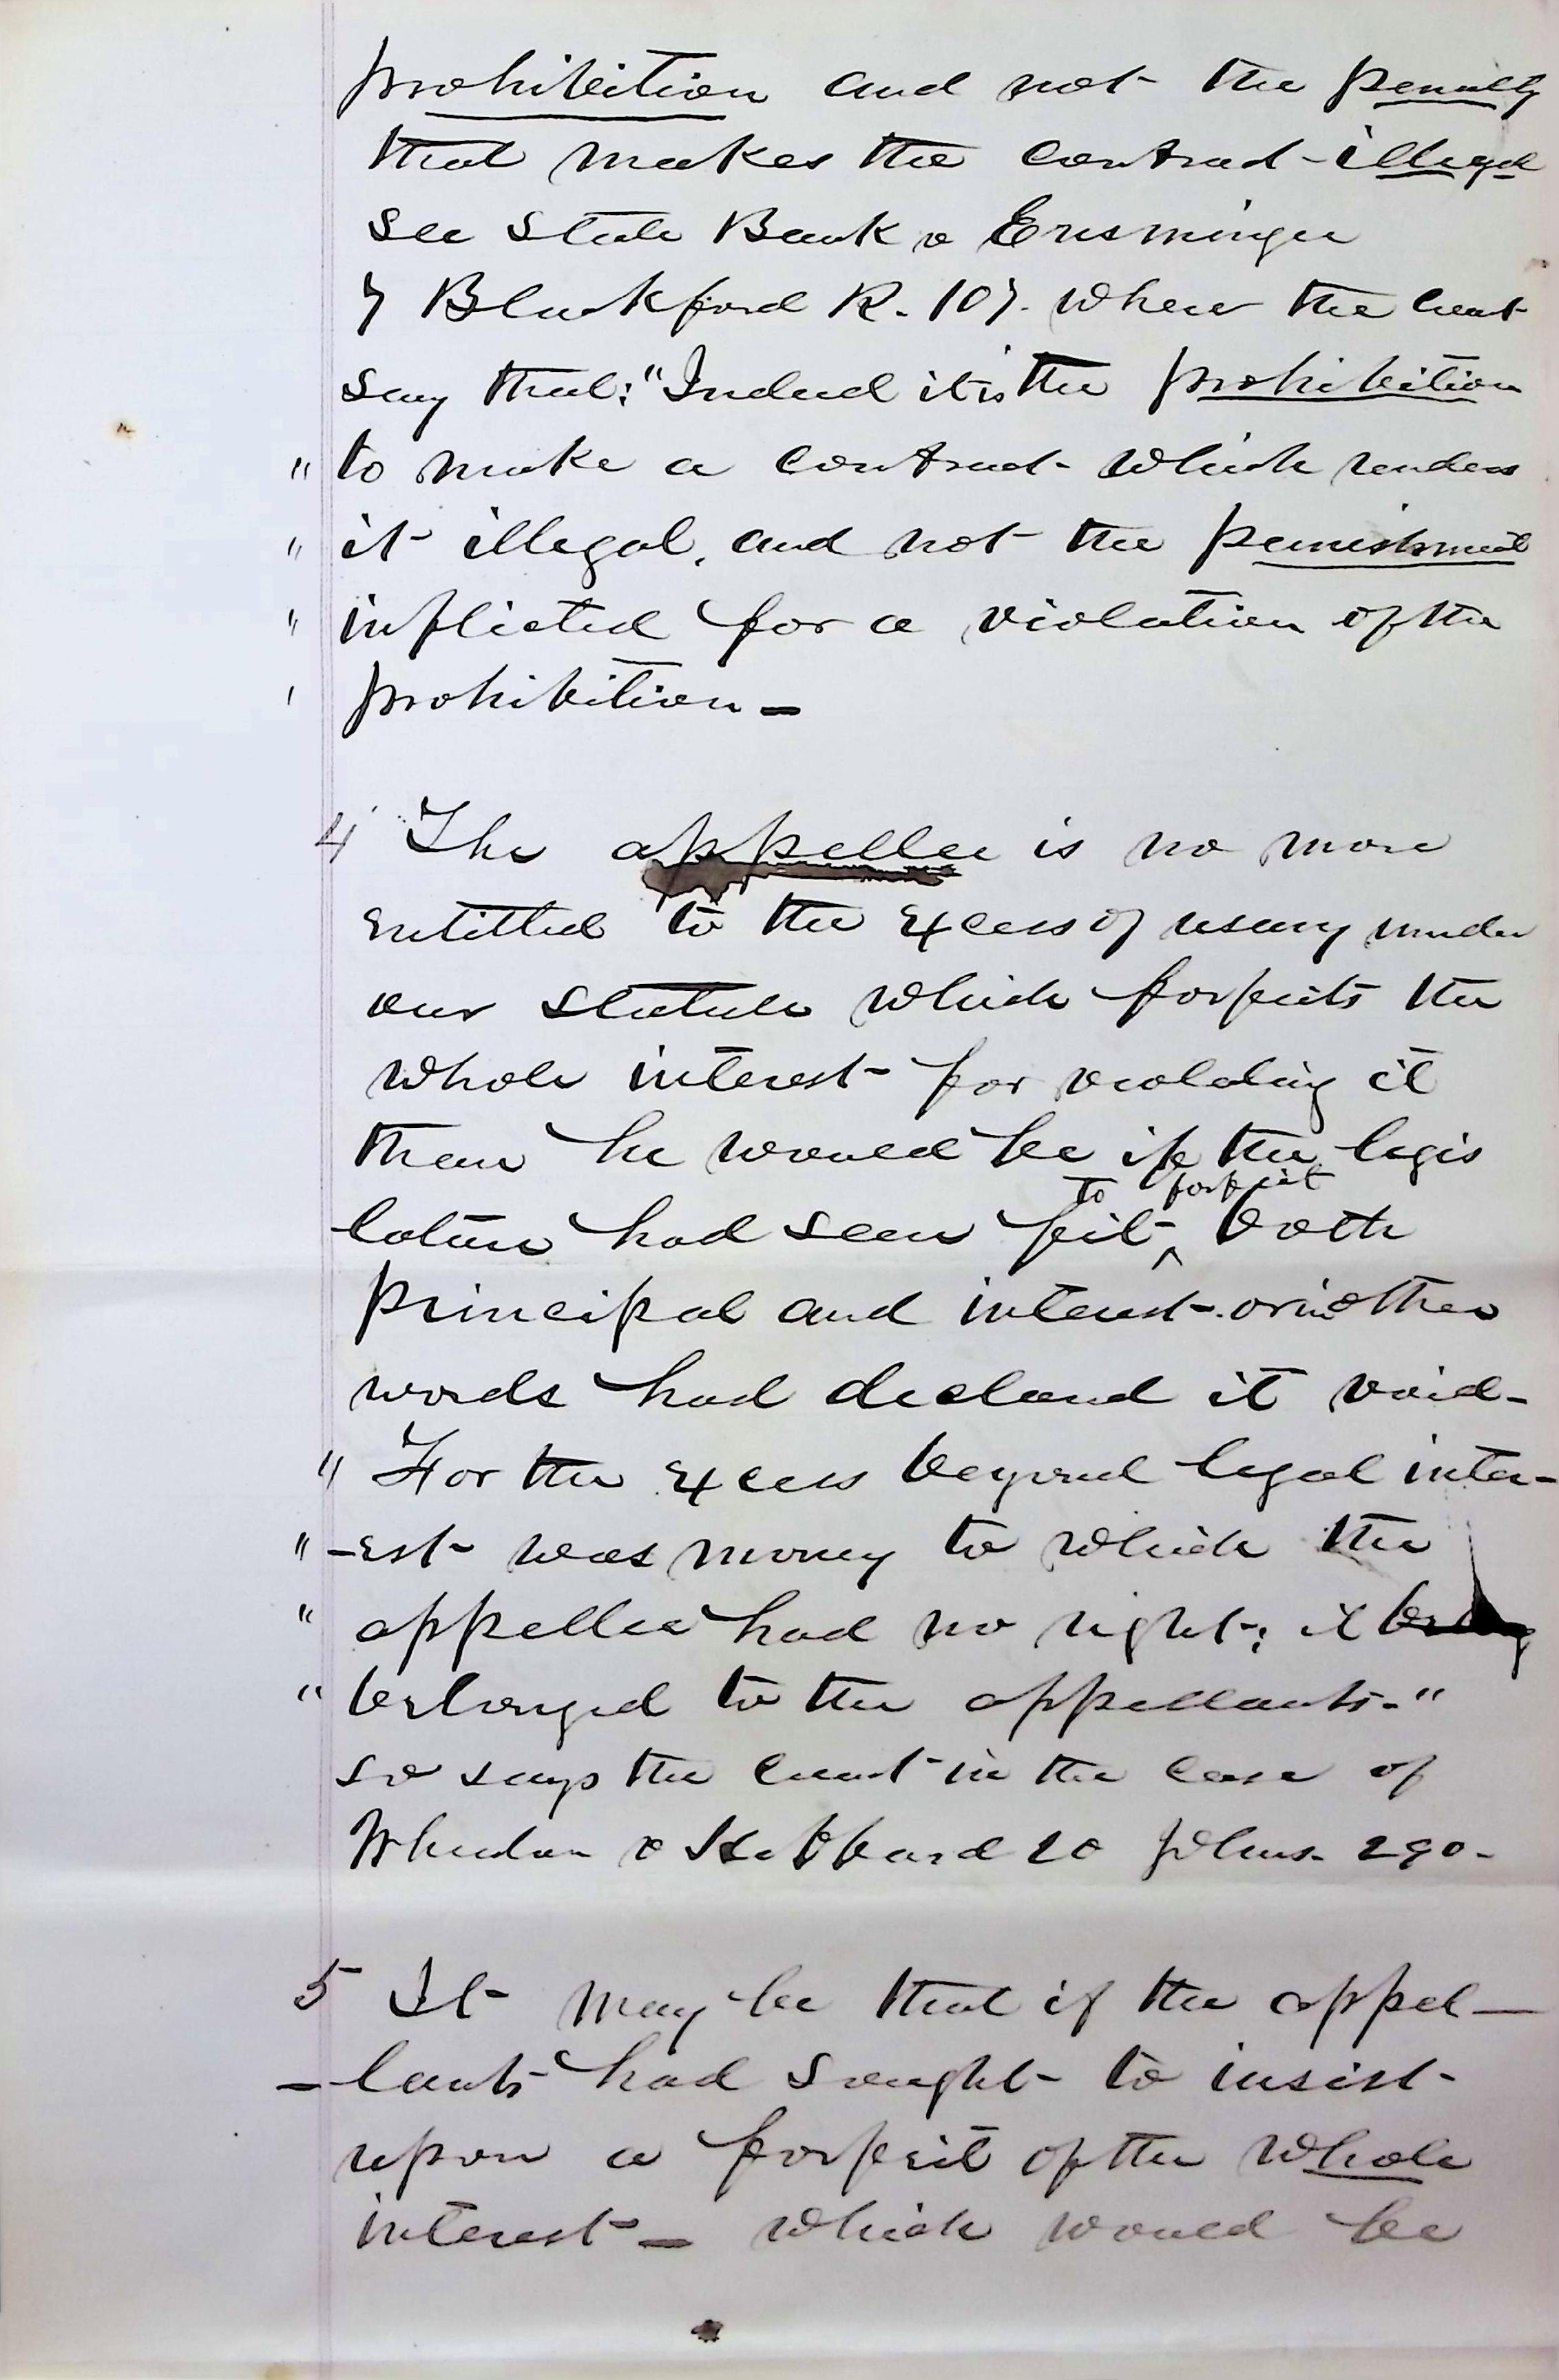 prohibition and not the penalty
that makes the contract illegal
see State Bank v Ensminger
7 Blackford R. 107. where the Court
say that: "Indeed it is the prohibition
" to make a contract which renders
" it illegal, and not the punishment
" inflicted for a violation of the
' prohibition _
4 The appellee is no more
entitled to the excess of usury under
our statute which forfeits the
whole interest for violating it
than he would be if the legis
to forfeit
lature had seen fit ^ both
principal and interest. or in other
words had declared it void-
" For the excess beyond legal inter-
" -est was money to which the
" appellee had no right; it
" belonged to the appellants."
so says the court in the case of
Wheelan v Hubbard 20 Johns. 290-
5 It may be that if the appel-
-lants had sought to insist
upon a forfeit of the whole
interest _ which would be